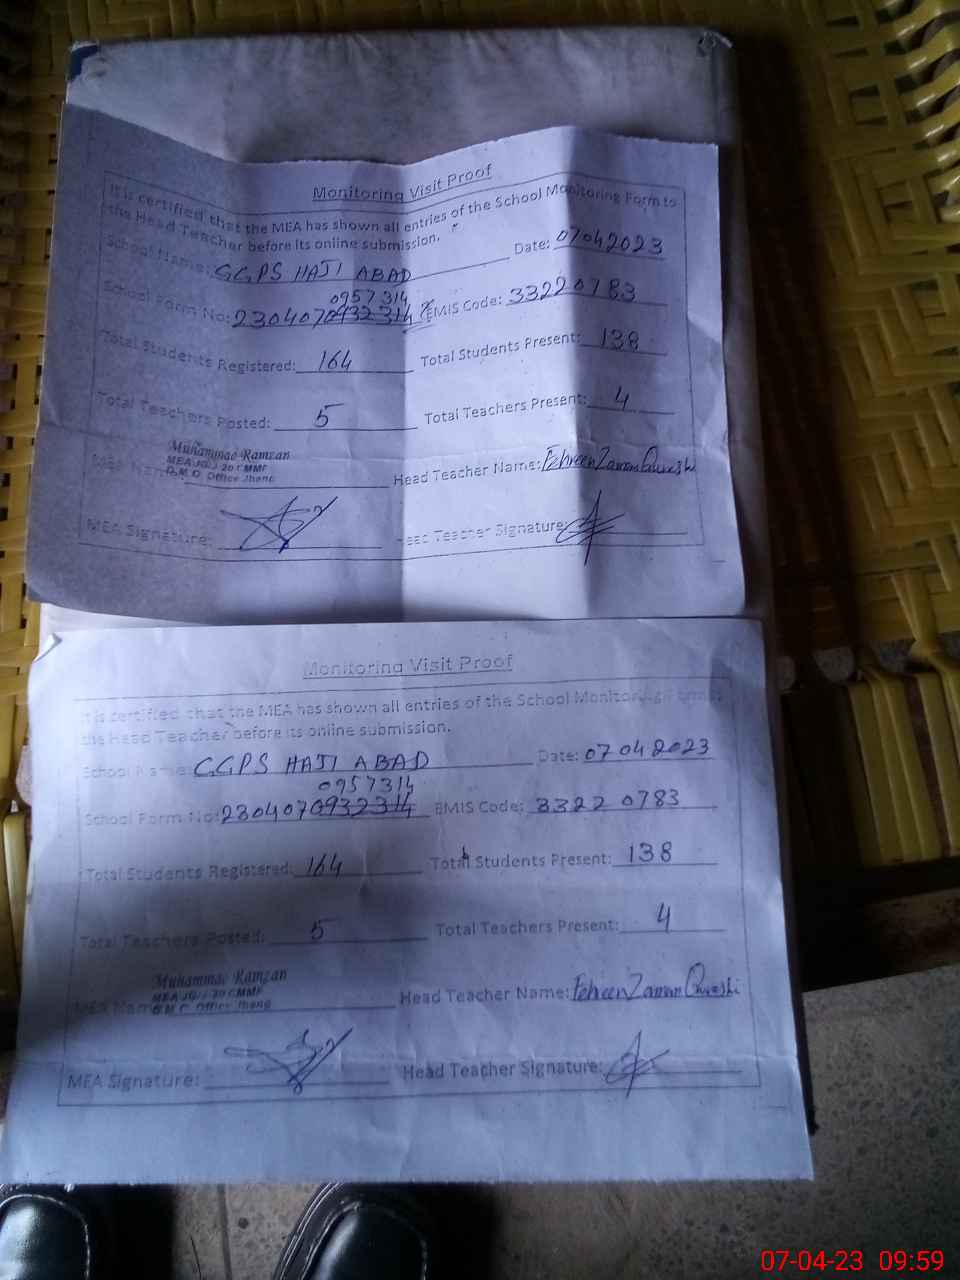 Monitoring Visit Proof
It is certified that the MEA has shown all entries of the School Monitoring Form to
the Head Teacher before its online submission.
School Name: GGPS HAJI ABAD Date: 07042023
0957314
School Form No: 2304070932314 EMIS Code: 33220783
Total Students Registered: 164 Total Students Present: 138
Total Teachers Posted: 5 Total Teachers Present: 4
Muhammad Ramzan
MEA Name: Head Teacher Name: Fehreen Zaman Qureshi
D.M.O Office Jhang
MEA Signature: Head Teacher Signature:
Monitoring Visit Proof
It is certified that the MEA has shown all entries of the School Monitoring Form to
the Head Teacher before its online submission.
School Name: GGPS HAJI ABAD Date: 07042023
0957314
School Form No: 2304070932314 EMIS Code: 33220783
Total Students Registered: 164 Total Students Present: 138
Total Teachers Posted: 5 Total Teachers Present: 4
Muhammad Ramzan
MEA Name: Head Teacher Name: Fehreen Zaman Qureshi
D.M.O Office Jhang
MEA Signature: Head Teacher Signature:
07-04-23 09:59